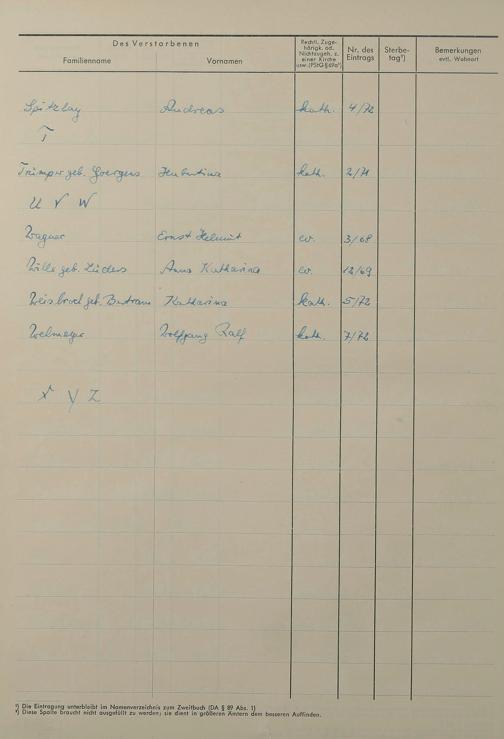 Des Verstorbenen
Familienname Vornamen Rechtl. Zuge-
hörigk. od.
Nichtzugeh. z.
einer Kirche
usw. (PStG § 69a¹) Nr. des
Eintrags Sterbe-
tag²) Bemerkungen
evtl. Wohnort
Spitzlay Andreas kath. 4/72
T
geb. Goergens Hubertina kath. 2/71
U V W
Wagner Ernst Helmut ev. 3/68
Wille geb. Lüders Anna Katharina ev. 12/69
Weisbrod geb. Bertram Katharina kath. 5/72
Welmeyer Wolfgang Ralf kath. 7/72
X Y Z
¹) Die Eintragung unterbleibt im Namenverzeichnis zum Zweitbuch (DA § 89 Abs. 1)
²) Diese Spalte braucht nicht ausgefüllt zu werden; sie dient in größeren Ämtern dem besseren Auffinden.